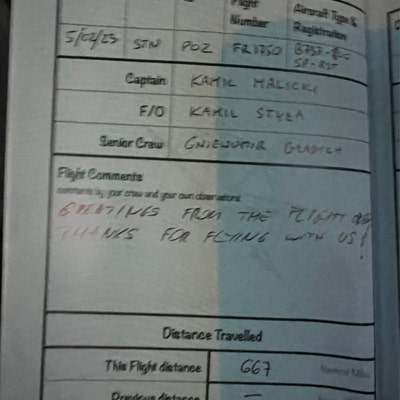 Flight Number
Aircraft Type & Registration
5/02/23 STN POZ FR1750 B737-800 SP-RST
Captain KAMIL MALICKI
F/O KAMIL STYŁA
Senior Crew GNIEWOMIR
Flight Comments
comments by your crew and your own observations
GREETINGS FROM THE FLIGHT
THANKS FOR FLYING WITH US!
Distance Travelled
This Flight distance 667 Nautical Miles
Previous distance —